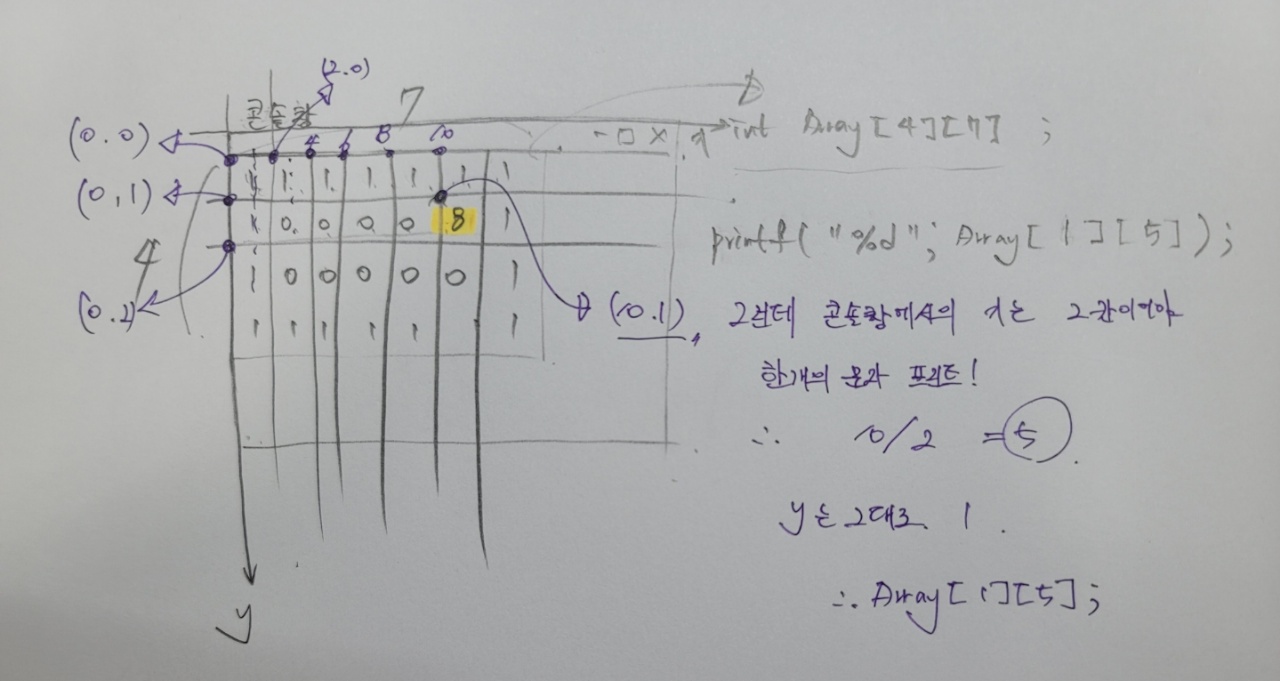 (2.0)
콘솔창 7
(0.0) 4 6 8 10 - □ x x int Array[4][7] ;
(0,1) 1 1 1 1 1 1 1
1 0 0 0 0 8 1
printf("%d"; Array[1][5]);
4 1 0 0 0 0 0 1
(0.2) 1 1 1 1 1 1 1
(10.1), 그런데 콘솔창에서의 x는 2칸이어야
한개의 문자 프린트!
∴ 10/2 = 5
y는 그대로 1.
∴ Array[1][5];
y